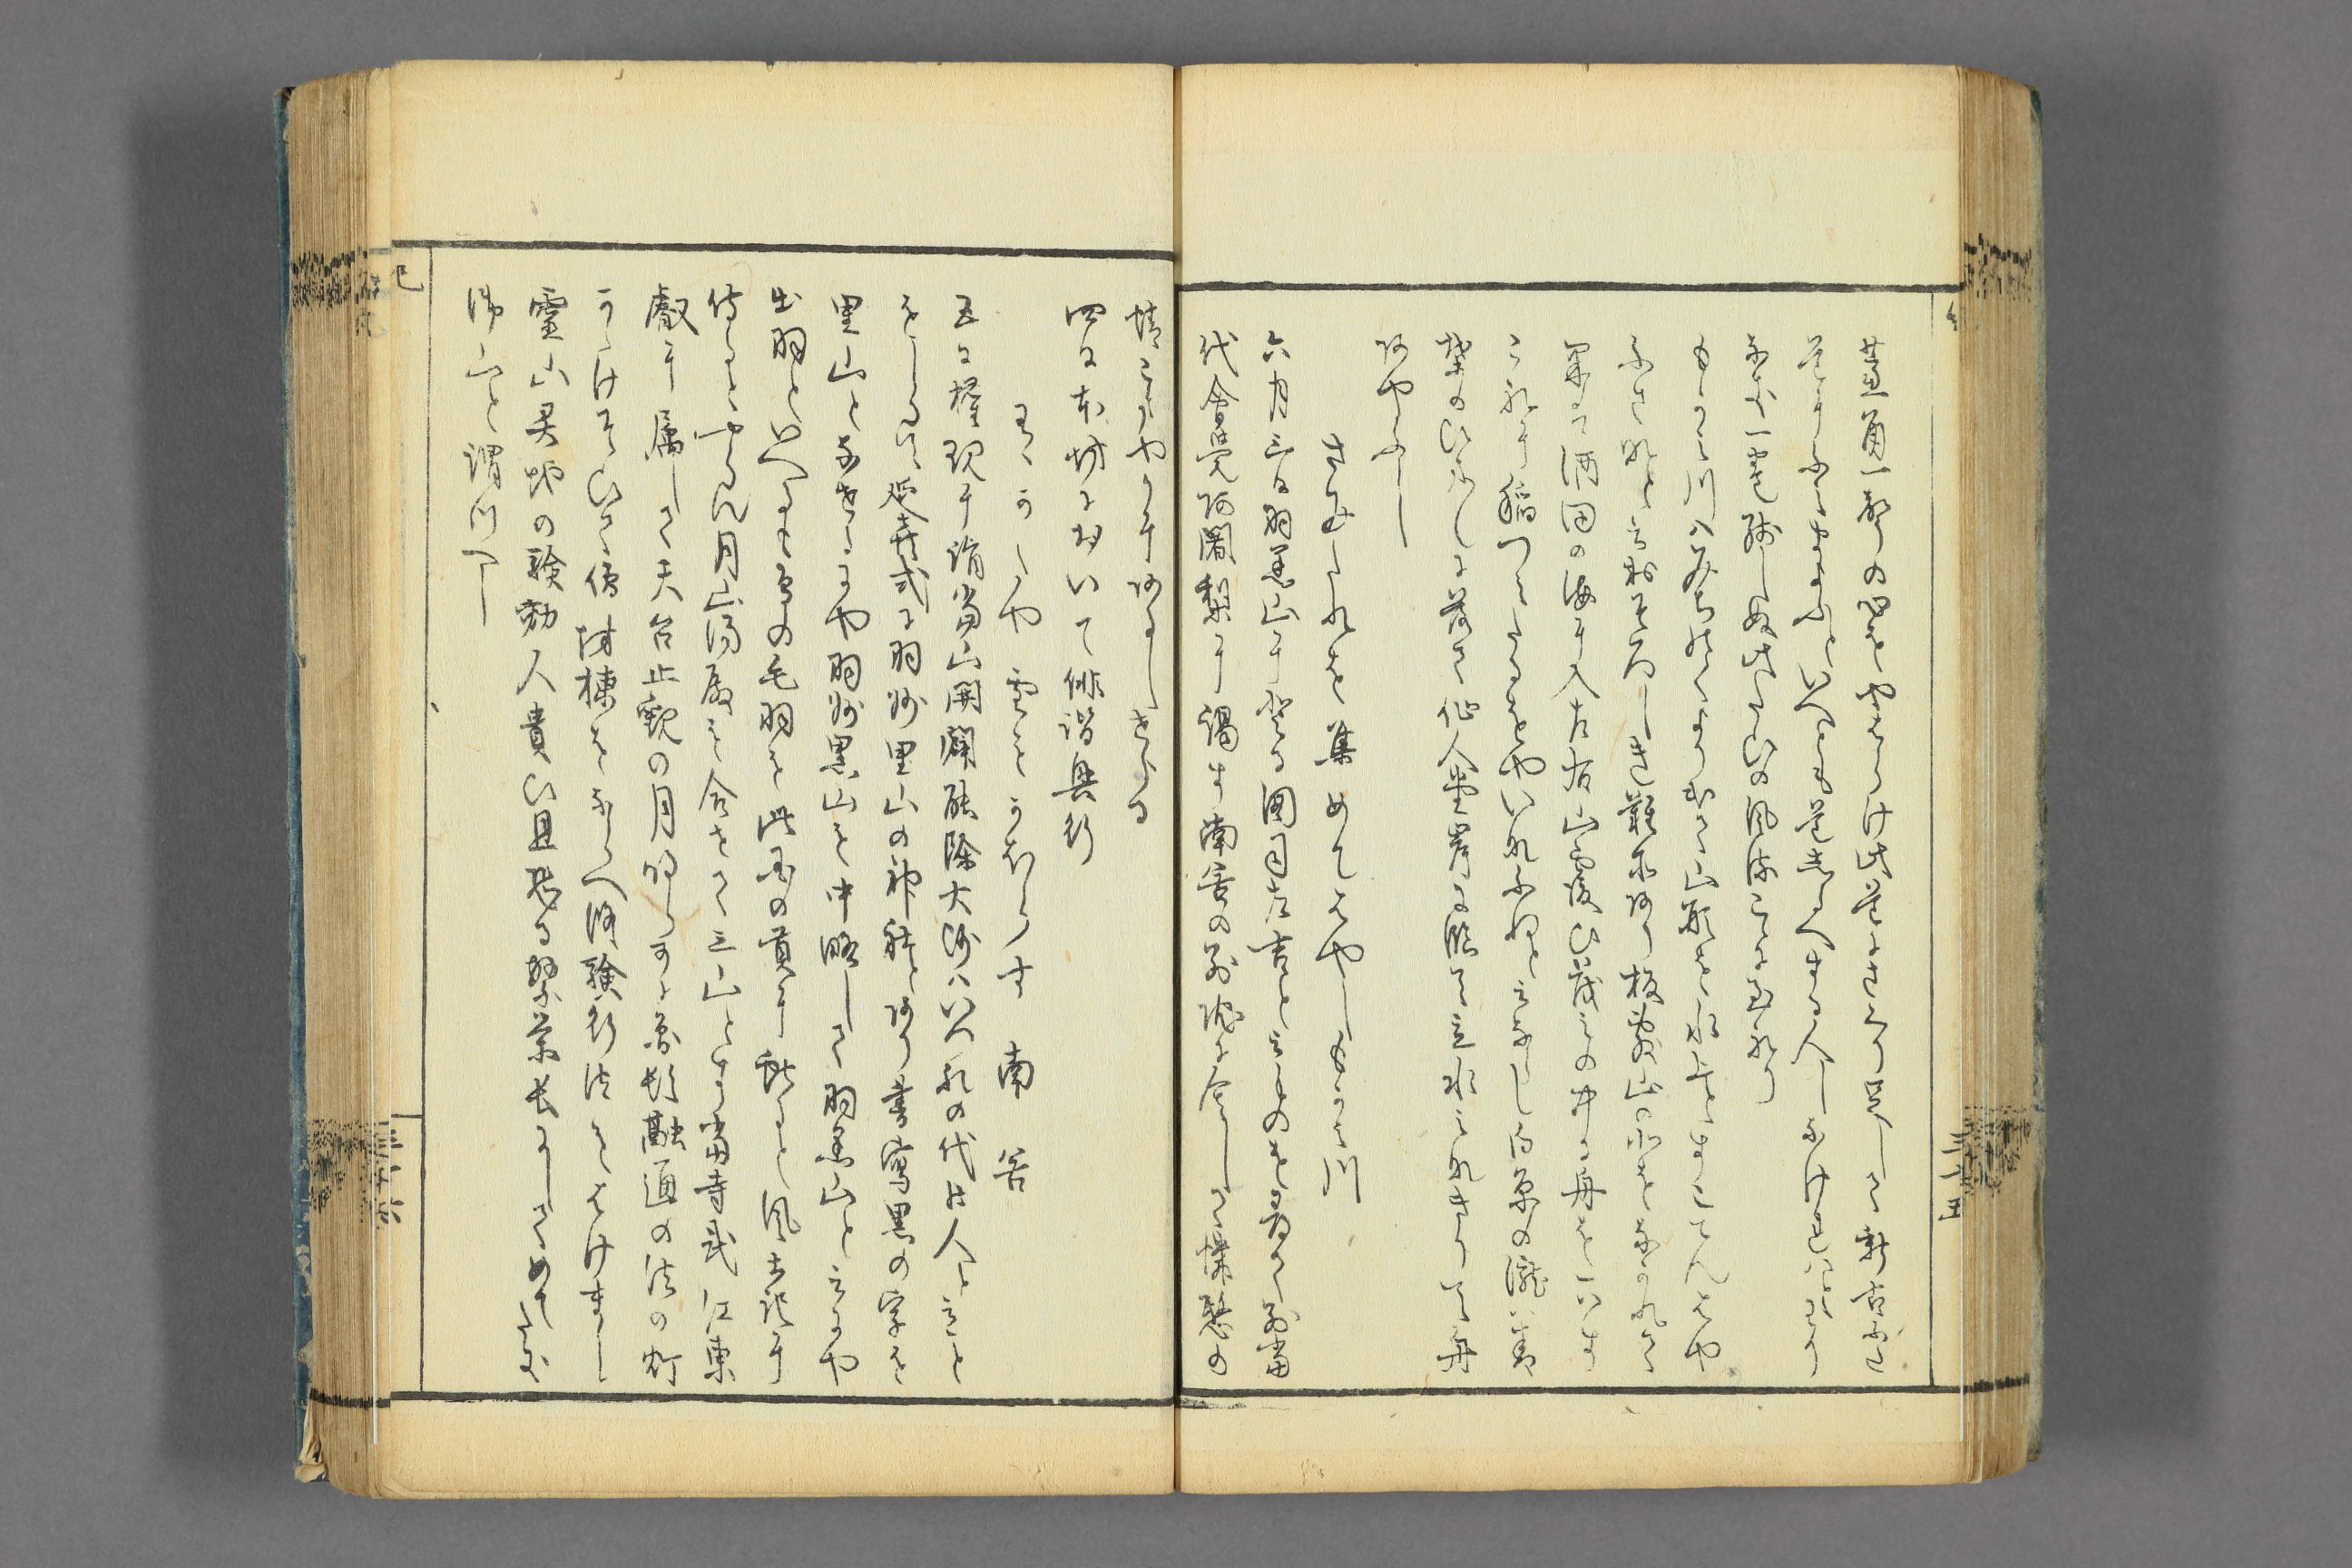 蘆角一聲の心をやはらけ此道にさくり足して新古ふた
道にふみまよふといへとも道しるへする人しなけれはとわり
なき一巻残しぬ此たひの風流こゝに至れり
もかみ川ハみちのくより出て山形を水上とすこてんはや
ふさなと云おそろしき難所あり板敷山の北をなかれて
果ハ酒田の海に入左右山覆ひ茂みの中に舟を下す
これに稲つみたるをやいなふねと云ならし白糸の瀧ハ青
葉のひまひまに落て仙人堂岸に臨て立水みなきつて舟
あやうし
さみたれを集めてはやしもかみ川
六月三日羽黒山に登る圖司左吉と云ものを尋て別當
代會覚阿闍梨に謁す南谷の別院に舎して憐愍の
情こまやかにあるしせらる
四日本坊において俳諧興行
有かたや雪をかほらす南谷
五日権現に詣當山開闢能除大師ハいつれの代の人と云こと
をしらす延喜式に羽州里山の神社とあり書寫黒の字を
里山となせるにや羽州黒山を中略して羽黒山と云にや
出羽といへるは鳥の毛羽を此國の貢に獻ると風土記に
侍るとやらん月山湯殿を合せて三山とす當寺武江東
叡に属して天台止観の月明らかに圓頓融通の法の灯
かゝけそひて僧坊棟をならへ修験行法をはけまし
霊山灵地の験効人貴ひ且恐る繁榮長にしてめてたき
御山と謂つへし
三十五
三十六